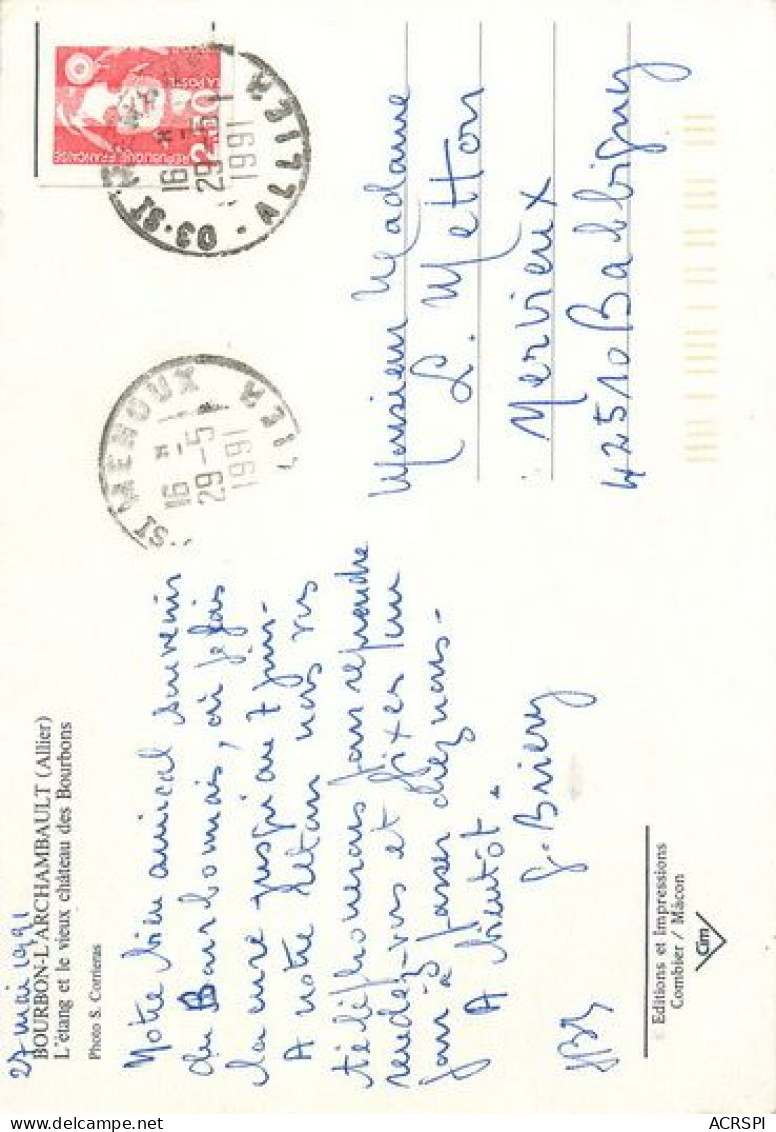 27 mai 1991
BOURBON-L'ARCHAMBAULT (Allier)
L'étang et le vieux château des Bourbons
Photo S. Corrieras
Notre bien amical souvenir
du Bourbonnais, où je fais
la cure jusqu'au 7 juin.
A notre retour nous vous
téléphonerons pour reprendre
rendez-vous et fixer un
jour à passer chez nous.
A bientôt.
G. Briery
Editions et impressions
Combier / Mâcon
Cim
LA POSTE
2,50
REPUBLIQUE FRANÇAISE
03-ST MENOUX
16 H
29-5
1991
ALLIER
ST MENOUX
16 H
29-5
1991
Monsieur Madame
L. Metton
Nervieux
42510 Balbigny
ACRSPI